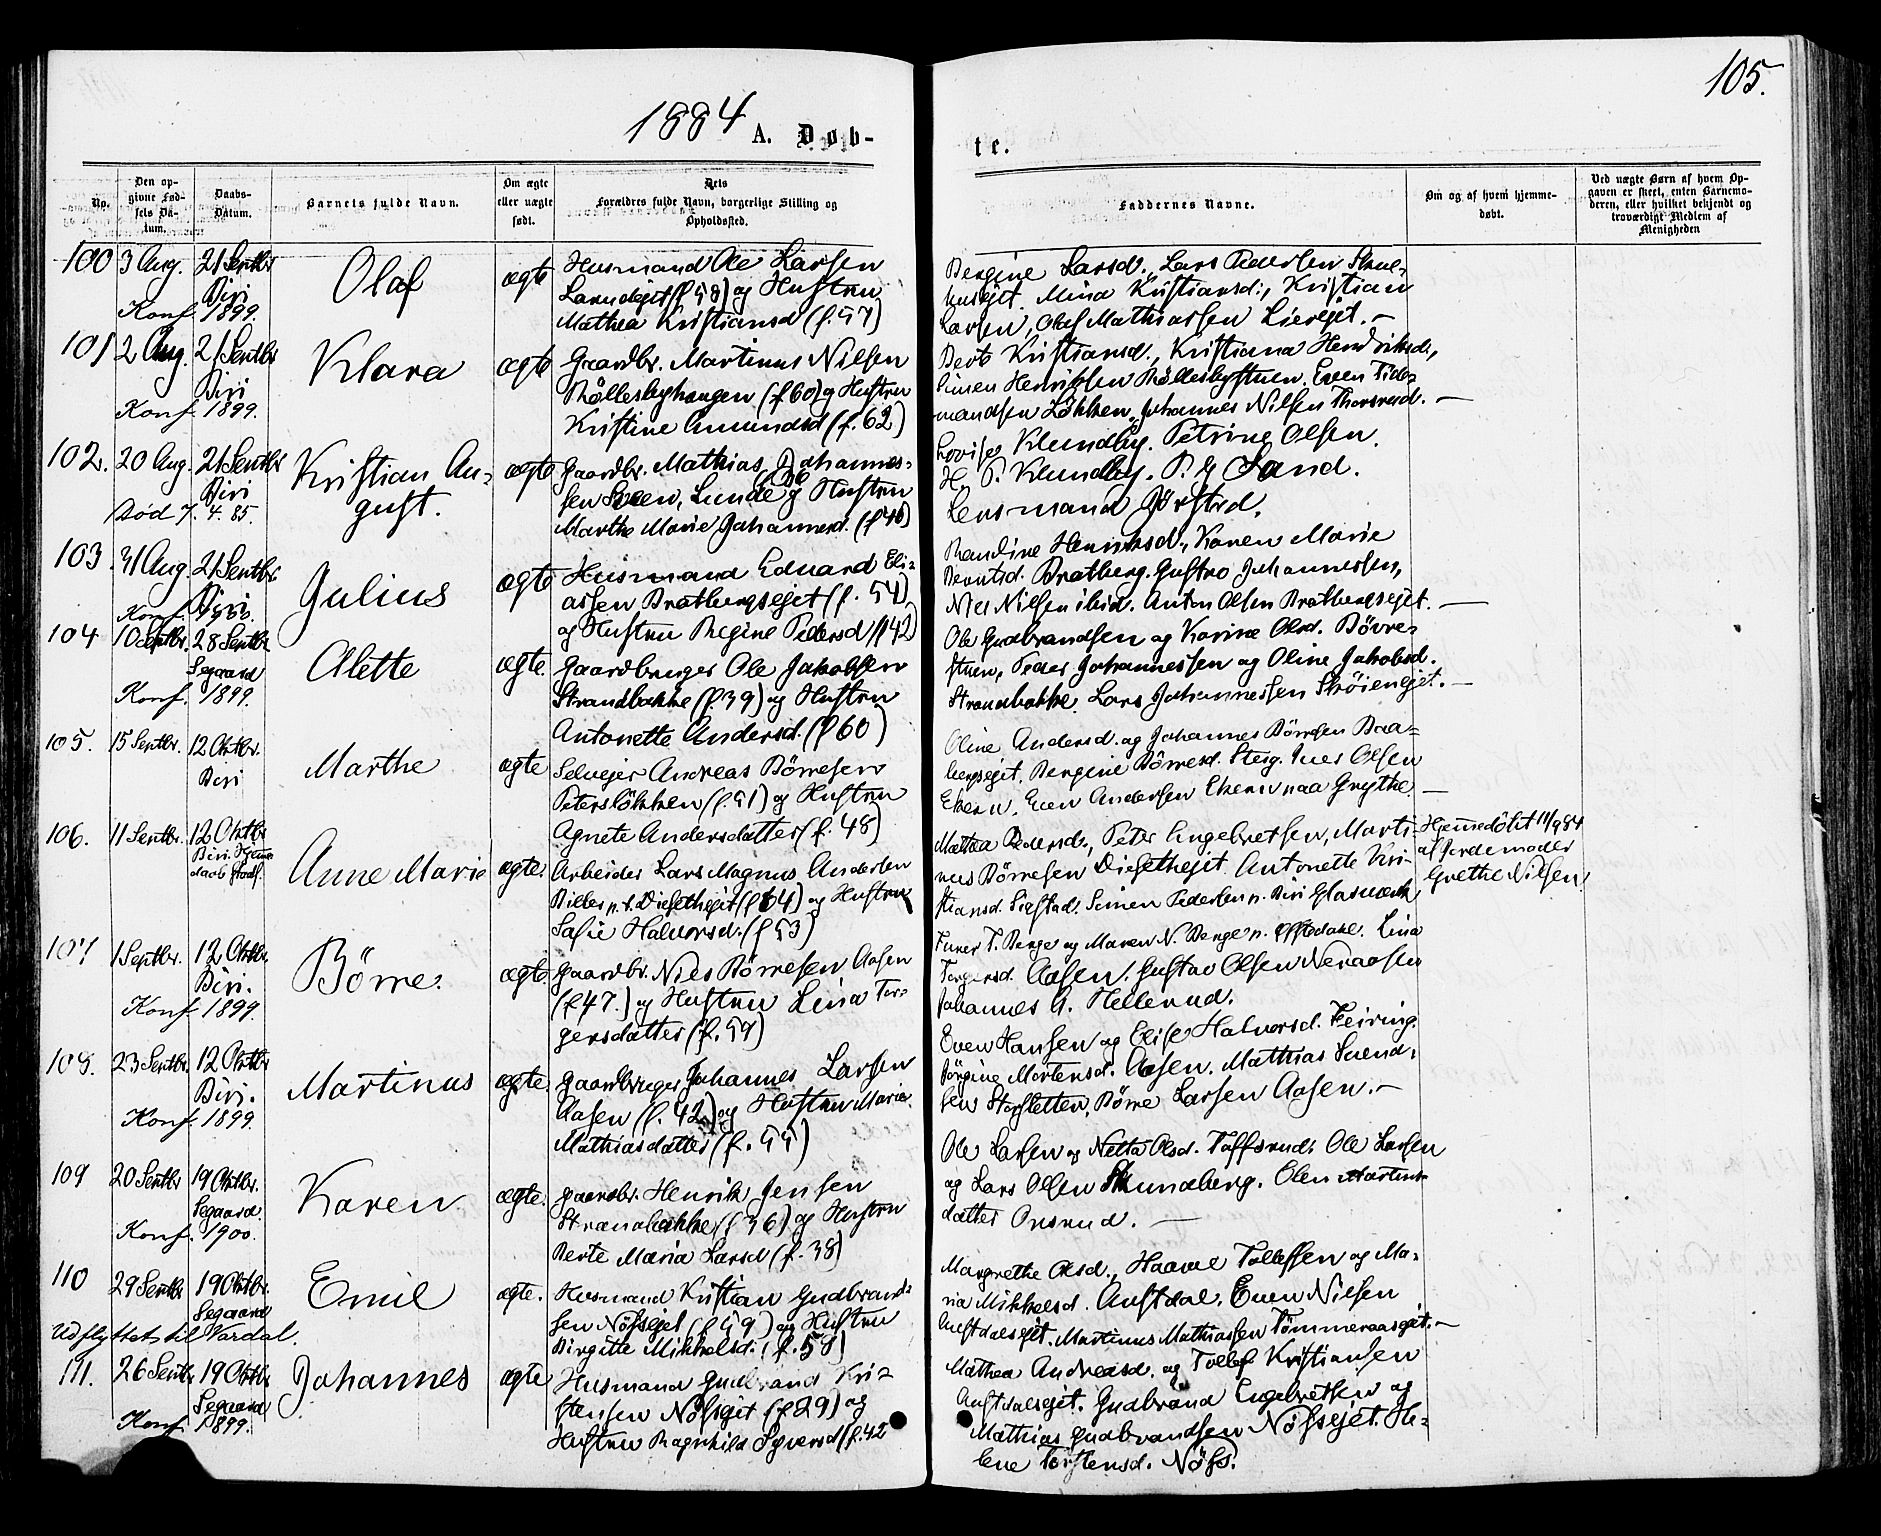 105.
1884 A. Døb-
te.
No.
Den op-
givne Fød-
sels Da-
tum.
Daabs-
Datum.
Barnets fulde Navn.
Om ægte
eller uægte
født.
Dets
Forældres fulde Navn, borgerlige Stilling og
Opholdssted.
Faddernes Navne.
Om og af hvem hjemme-
døbt.
Ved uægte Børn af hvem Op-
gaven er skeet, enten Barnemo-
deren, eller hvilket bekjendt og
troværdigt Medlem af
Menigheden
100 3 Aug. 21 Septbr
Biri
Konf. 1899.
Olaf
ægte
Husmand Ole Larsen
(f. 58) og Hustru
Mathea Kristiansd (f. 57)
Bergine Larsd., Lars Pedersen
Mina Kristiansd., Kristian
Larsen, Olaf Mathiassen Lierejet. —
101 2 Aug. 21 Septbr
Biri
Konf. 1899.
Klara
ægte
Gaardbr. Martinus Nilsen
Bøllesbyhaugen (f 60) og Hustru
Kristine Amundsd (f. 62)
Berte Kristiansd., Kristiana Hendriksd.,
Simen Henriksen Bøllesbystuen. Even Tide-
mandsen Løkken, Johannes Nilsen Thorsrud. —
102. 20 Aug. 21 Septbr
Biri
Død 7. 4. 85.
Kristian Au-
gust.
ægte
Gaardbr. Mathias Johannes-
sen Sveen, Lunde (f 36) og Hustru
Marthe Marie Johannesd. (f 46)
Lovise Klundby. Petrine Olsen.
H. P. Klundby. P. G Sand.
Lensmand Jørstad.
103. 31 Aug. 21 Septbr.
Biri
Konf.
Julius
ægte
Husmand Eduard Eli-
assen Bratbergsejet (f. 54)
og Hustru Regine Pedersd (f 42)
Randine Henriksd., Karen Marie
Berntsd. Bratberg. Gustav Johannessen,
Niels Nilsen ibid. Anton Olsen Bratbergsejet. —
104 10 Septbr. 28 Septbr
Segaard
Konf. 1899.
Alette
ægte.
Gaardbruger Ole Jakobsen
Strandbakke (f. 39) og Hustru
Antonette Andersd. (f 60)
Ole Gudbrandsen og Karine Olsd. Bøvre-
stuen, Peder Johannessen og Oline Jakobsd.
Strandbakke. Lars Johannessen Skrøienejet. —
105. 15 Septbr. 12 Oktbr.
Biri
Marthe
ægte
Selvejer Andreas Børresen
Petersløkken (f. 51) og Hustru
Agnete Andersdatter (f. 48)
Oline Andersd. og Johannes Børresen Baa-
bergsejet. Bergine Børresd. Steg. Iver Olsen
Ekern. Even Andersen Ekern paa Grythe. —
106. 11 Septbr. 12 Oktbr
Biri. Hjemme
daab stadf.
Anne Marie
ægte.
Arbeider Lars Magnus Andersen
p. t. Diesethejet (f 54) og Hustru
Sofie Halvorsd. (f 53)
Mathea Pedersd., Peter Engebretsen, Marti-
nus Børresen Diesethejet. Antonette Kri-
stiansd. Sigstad. Simen Pedersen p. Biri Glasværk
Hjemmedöbt 11/9 84
af Jordemoder
Grethe Nilsen
107 1 Septbr. 12 Oktbr.
Biri.
Konf 1899.
Börre.
ægte.
Gaardbr. Niels Börresen Aasen
(f 47.) og Hustru Lina Tor-
gersdatter (f. 54)
T. Berge og Maren N. Berge p. Lina
Torgersd. Aasen. Gustav Olsen Neraasen
Johannes A. Hellerud.
108. 23 Septbr. 12 Oktbr
Biri.
Konf. 1899.
Martinus
ægte.
Gaardbruger Johannes Larsen
Aasen (f. 42) og Hustru Marie
Mathiasdatter (f. 55)
Even Hansen og Elise Halvorsd. Feiring.
Jørgine Mortensd. Aasen. Mathias Svend-
sen Storsletten, Børre Larsen Aasen. —
109 20 Septbr 19 Oktbr.
Segaard.
Konf. 1900.
Karen
ægte.
Gaardbr. Henrik Jensen
Strandbakke (f 36) og Hustru
Berte Maria Larsd (f. 38)
Ole Larsen og Netta Olsd. Toffsrud. Ole Larsen
og Lars Olsen Skundberg. Olea Martins-
datter Onsrud. —
110 29 Septbr 19 Oktbr.
Segaard
Udflyttet til Vardal.
Emil
ægte.
Husmand Kristian Gudbrand-
sen Nøssejet (f 59) og Hustru
Birgitte Mikkelsd. (f. 58)
Margrethe Olsd., Haavel Tollefsen og Ma-
ria Mikkelsd. Austdal. Even Nilsen
Austdalsejet. Martinus Mathiassen Tömmeraasejet. —
111. 26 Septbr 19 Oktbr
Segaard
Konf. 1899.
Johannes
ægte
Husmand Gudbrand Kri-
stensen Nøssejet (f 29) og
Hustru Ragnhild Syversd (f. 42
Mathea Andreasd. og Tollef Kristiansen
Austdalsejet. Gudbrand Engebretsen og
Mathias Gudbrandsen Nøssejet. He-
lene Torstensd. Nøss.